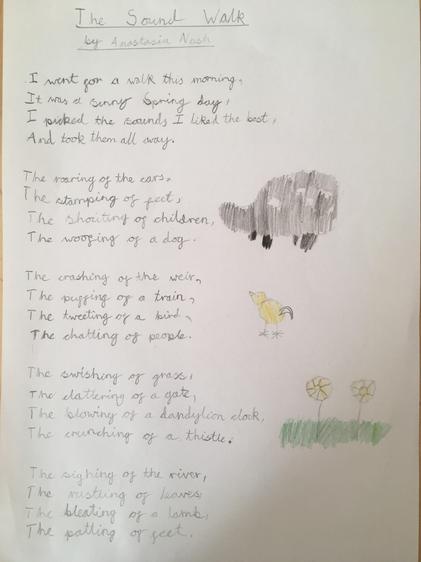 The Sound Walk
by Anastasia Nash
I went for a walk this morning,
It was a sunny Spring day,
I picked the sounds I liked the best,
And took them all away.
The roaring of the cars,
The stamping of feet,
The shouting of children,
The woofing of a dog.
The crashing of the weir,
The puffing of a train,
The tweeting of a bird,
The chatting of people.
The swishing of grass,
The clattering of a gate,
The blowing of a dandylion clock,
The crunching of a thistle.
The sighing of the river,
The rustling of leaves,
The bleating of a lamb,
The patting of feet.